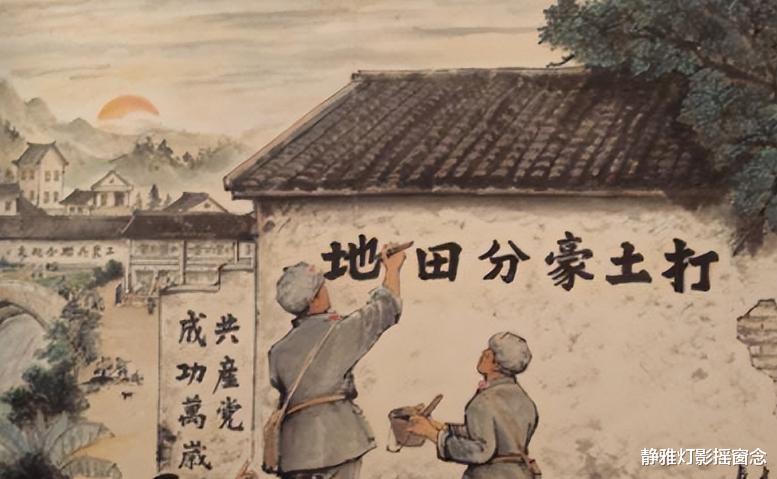 打土豪分田地
共產党
成功萬歲
静雅灯影摇窗念